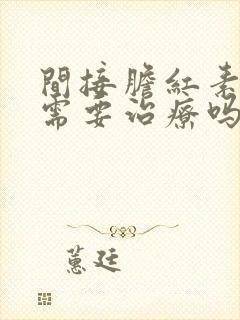 間接膽紅素
需要治療嗎
蕙廷